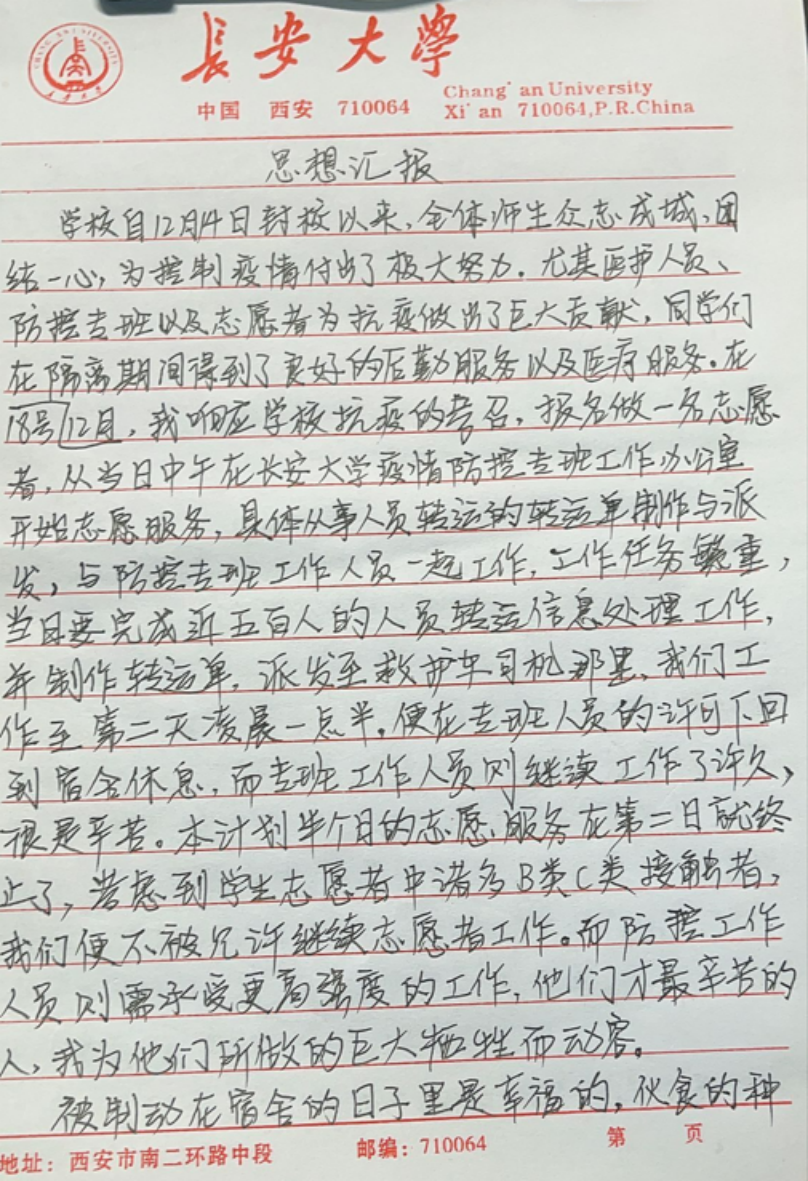 長安大學
中国 西安 710064
Chang'an University
Xi'an 710064,P.R.China
思想汇报
学校自12月14日封校以来,全体师生众志成城,团
结一心,为控制疫情付出了极大努力。尤其医护人员、
防控专班以及志愿者为抗疫做出了巨大贡献,同学们
在隔离期间得到了良好的后勤服务以及医疗服务。在
18号12月,我响应学校抗疫的号召,报名做一名志愿
者,从当日中午在长安大学疫情防控专班工作办公室
开始志愿服务,具体从事人员转运的转运单制作与派
发,与防控专班工作人员一起工作,工作任务繁重,
当日要完成近五百人的人员转运信息处理工作,
并制作转运单,派发至救护车司机那里,我们工
作至第二天凌晨一点半,便在专班人员的许可下回
到宿舍休息,而专班工作人员则继续工作了许久,
很是辛苦。本计划半个月的志愿服务在第二日就终
止了,考虑到学生志愿者中诸多B类C类接触者,
我们便不被允许继续志愿者工作。而防控工作
人员则需承受更高强度的工作,他们才最辛苦的
人,我为他们所做的巨大牺牲而动容。
被制动在宿舍的日子里是幸福的,伙食的种
地址:西安市南二环路中段 邮编:710064 第 页